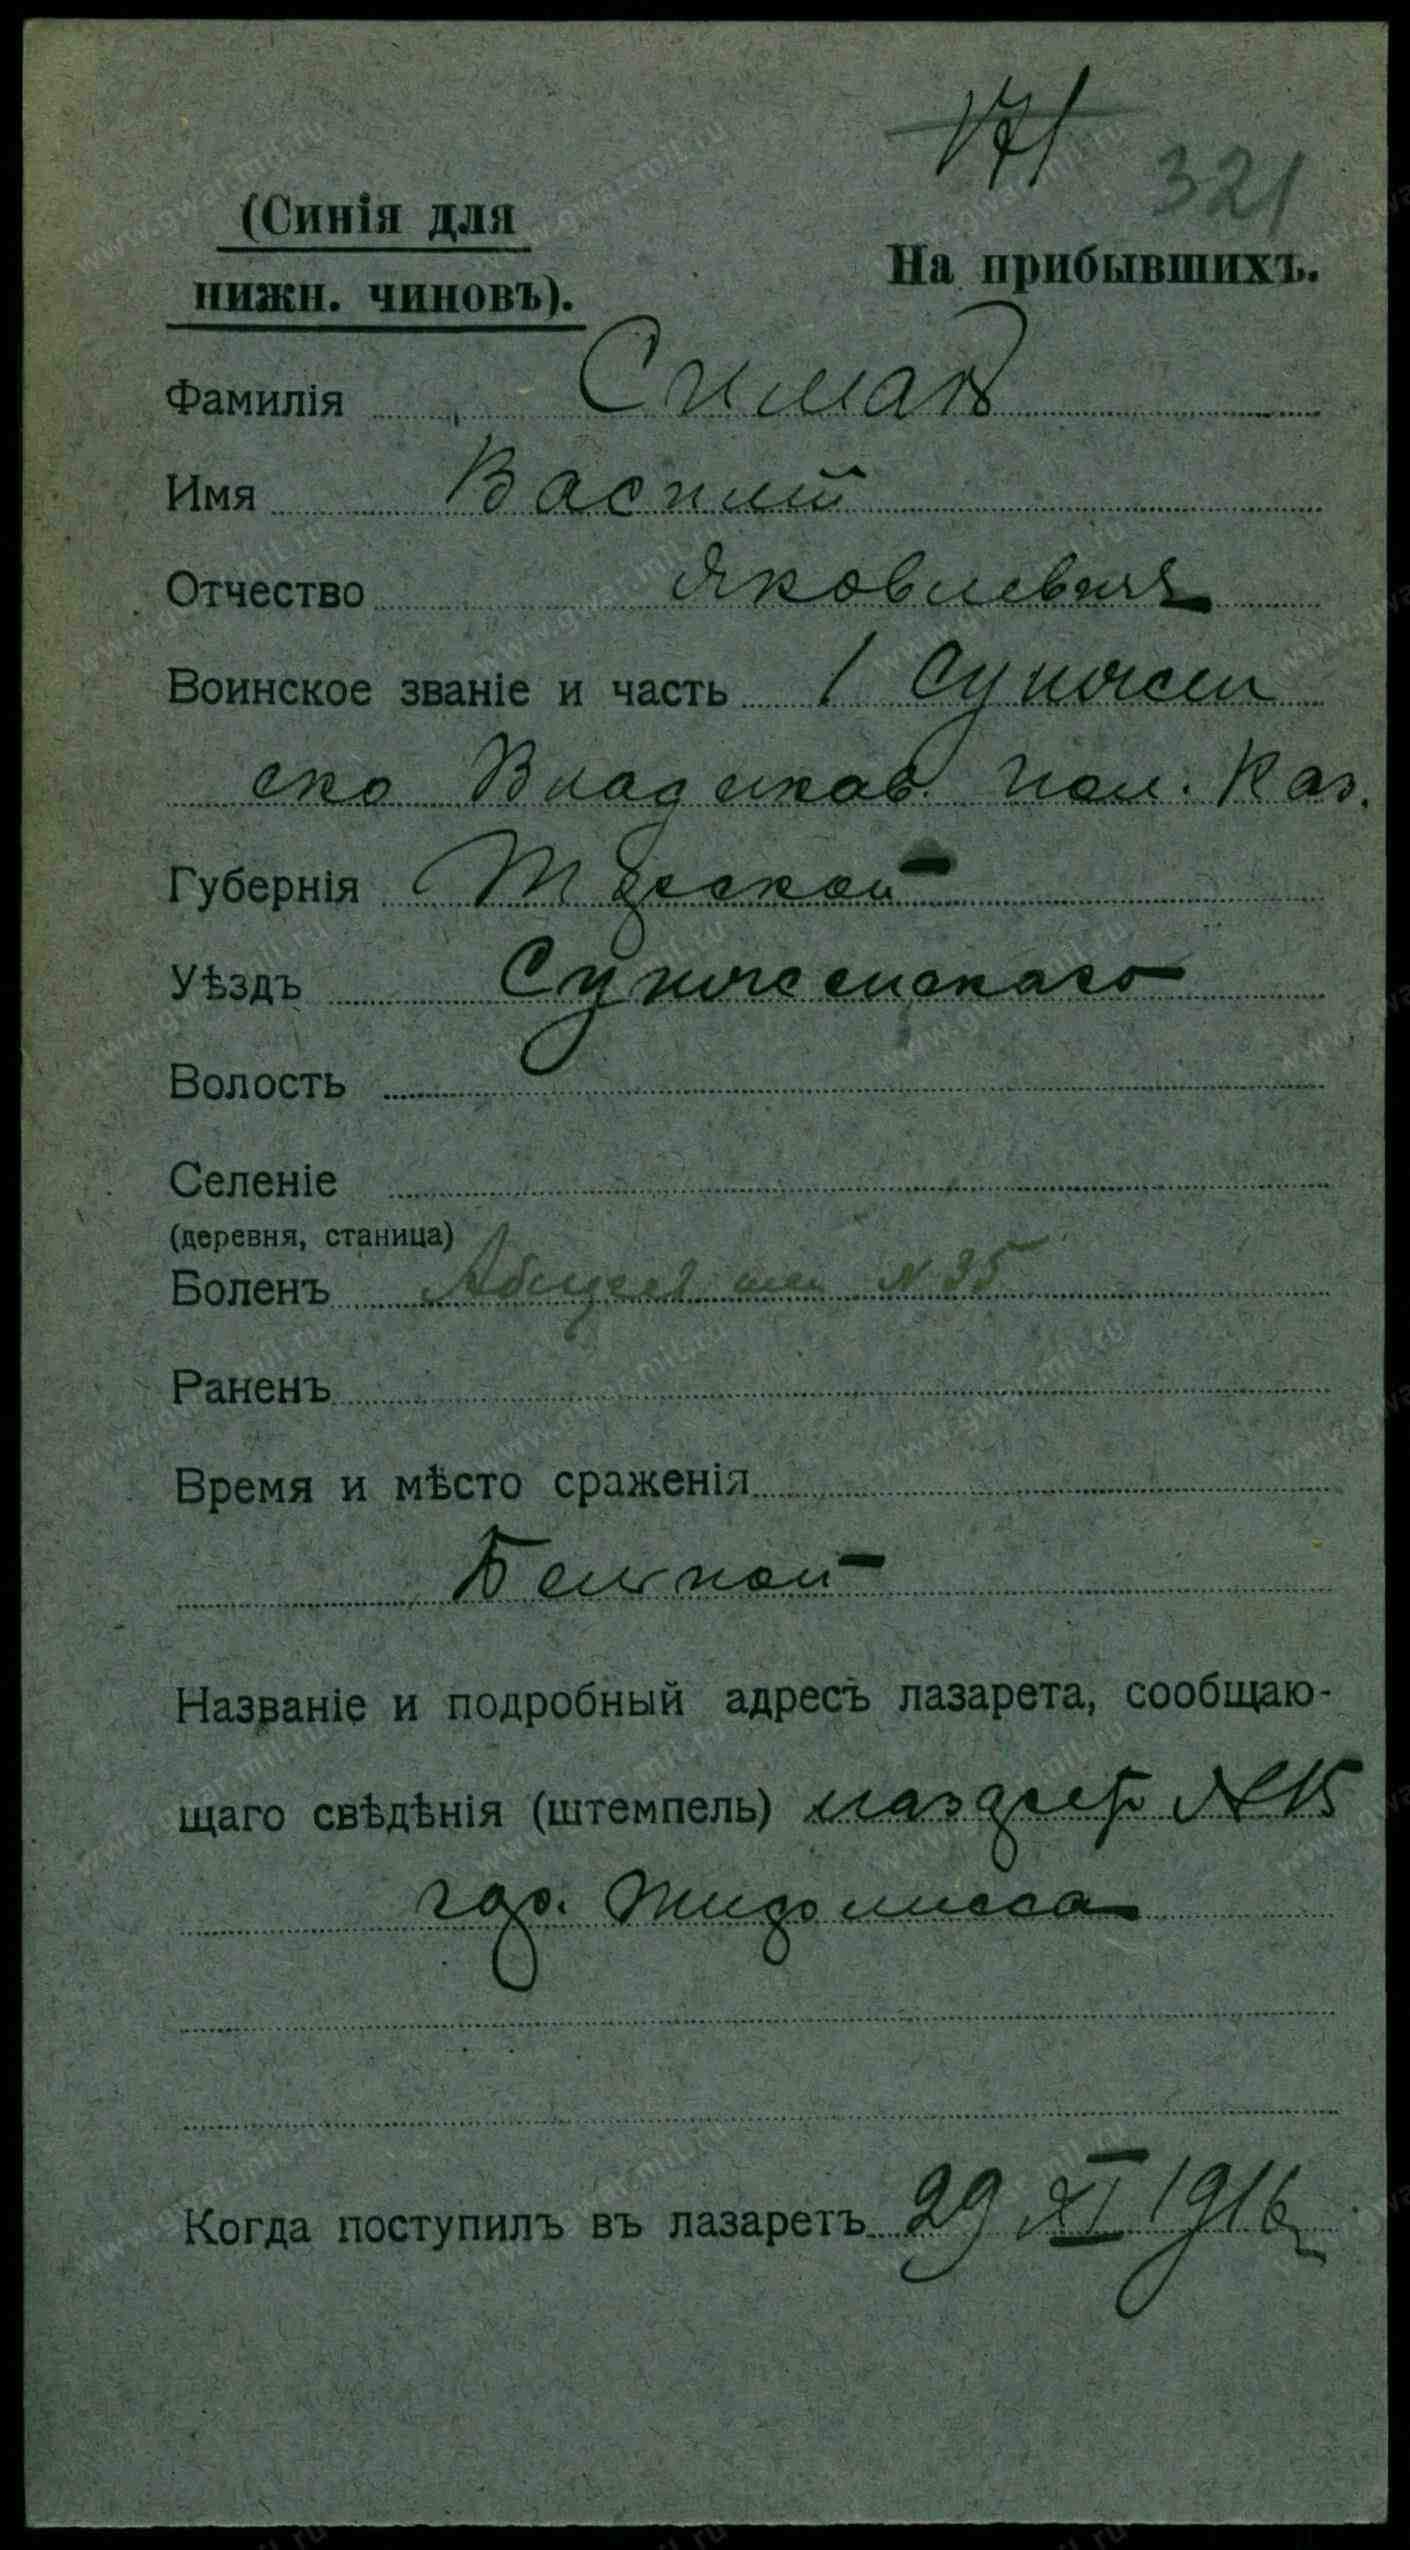 171
321
(Синія для
На прибывшихъ.
нижн. чиновъ).
Фамилія
Имя Василій
Отчество Яковлевичъ
Воинское званіе и часть 1 Сунжен
ско Владикав. пол. Каз.
Губернія Терской
Уѣздъ Сунженскаго
Волость
Селеніе
(деревня, станица)
Боленъ
Раненъ
Время и мѣсто сраженія
Больной
Названіе и подробный адресъ лазарета, сообщаю-
щаго свѣдѣнія (штемпель) лазарет №
гор. Тифлисса
Когда поступилъ въ лазаретъ 29 XI 1916